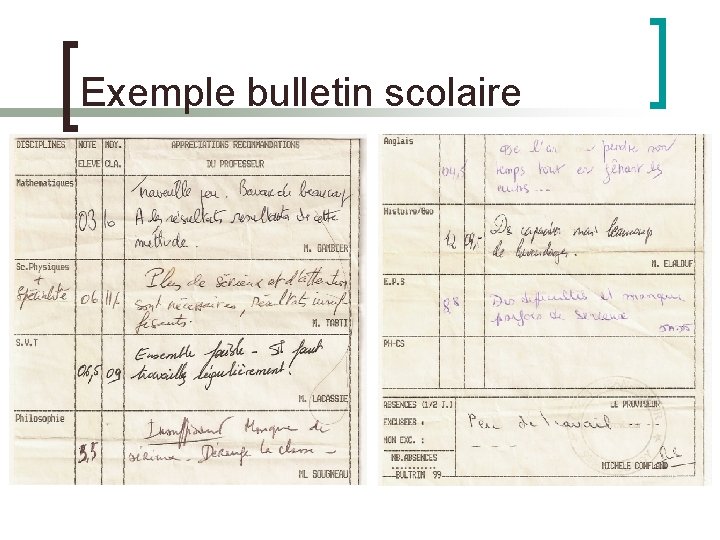 Exemple bulletin scolaire
DISCIPLINES NOTE MOY. APPRECIATIONS RECOMMANDATIONS
ELEVE CLA. DU PROFESSEUR
Mathematiques
03 10
Travaille peu. Bavarde beaucoup
A les résultats resultats de cette
méthode.
M. GAMBIER
Sc.Physiques
+
Spécialité
06 11
Plus de sérieux et d'attention
sont nécessaires, résultats insuf
fisants.
M. TABTI
S.V.T
06,5 09
Ensemble faible - Il faut
travailler régulièrement!
M. LACASSIE
Philosophie
5,5
Insuffisant Manque de
sérieux. Dérange la classe -
ML SOUGNEAU
Anglais
04,5
perdre son
temps tout en gênant les
Histoire/Geo
12 09,-
Des capacités mais beaucoup
de bavardages.
M. ELALOUF
E.P.S
Des difficultés et manque
parfois de sérieux
PH-CS
ABSENCES (1/2 J.)
EXCUSEES :
NON EXC. :
NB.ABSENCES
BULTRIM 99
LE PROVISEUR
Peu de travail
MICHELE